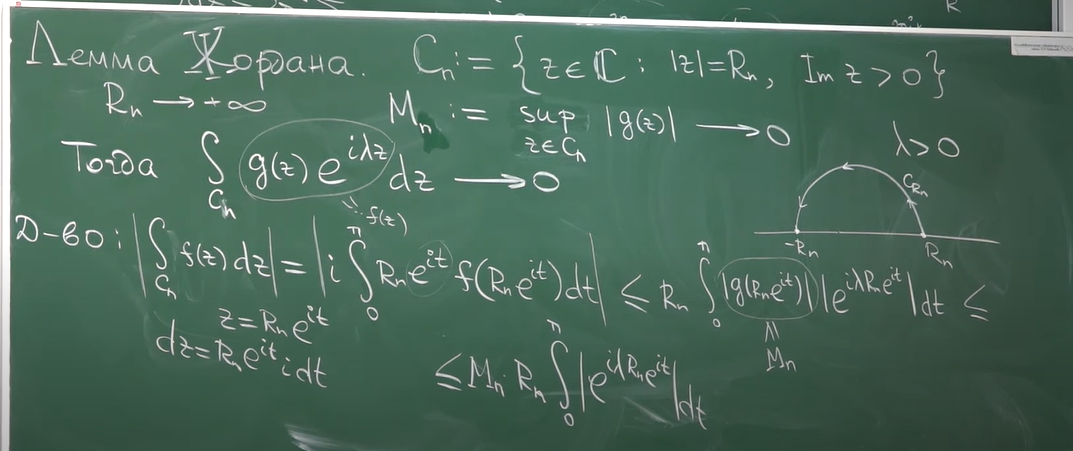 Лемма Жордана. C_n := {z ∈ ℂ : |z| = R_n, Im z > 0}
R_n → +∞ M_n := sup_{z∈C_n} |g(z)| → 0
λ > 0
Тогда ∫_{C_n} g(z) e^{iλz} dz → 0
f(z)
C_{R_n}
-R_n R_n
Д-во: |∫_{C_n} f(z) dz| = |i ∫_0^π R_n e^{it} f(R_n e^{it}) dt| ≤ R_n ∫_0^π |g(R_n e^{it})| |e^{iλR_n e^{it}}| dt ≤
z = R_n e^{it}
dz = R_n e^{it} i dt
M_n
≤ M_n · R_n ∫_0^π |e^{iλR_n e^{it}}| dt